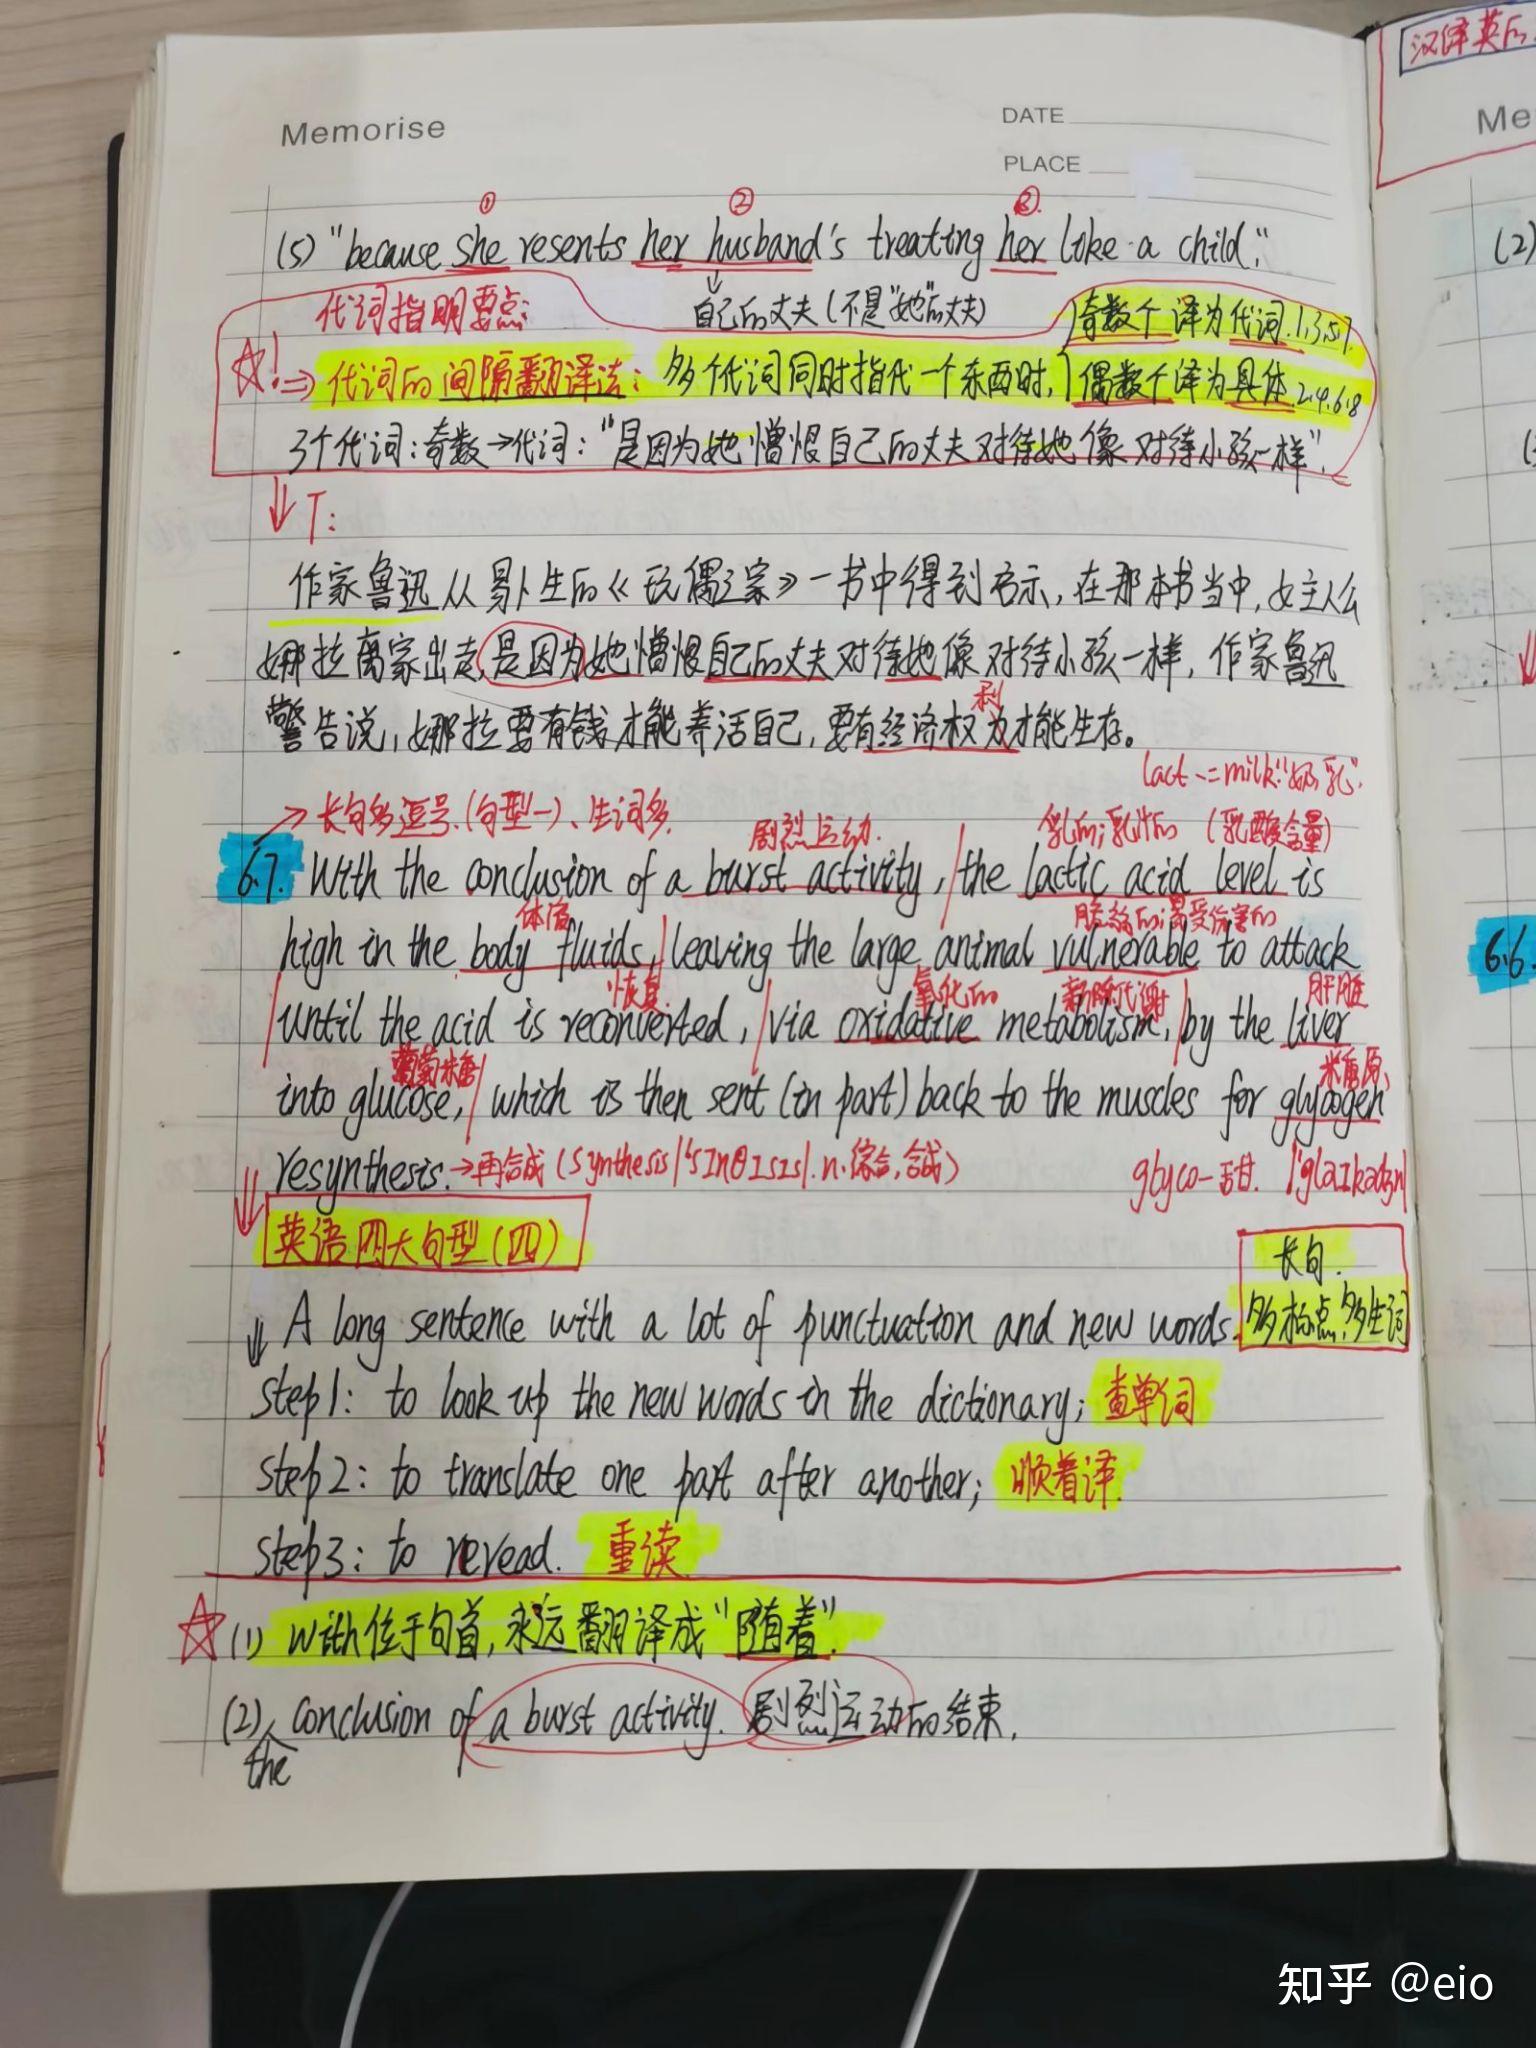 汉译英的
Memorise
DATE
PLACE
Me
① ② ③
(5) "because she resents her husband's treating her like a child."
代词指明要点:
自己的丈夫(不是"她"的丈夫)
奇数个译为代词.1,3,5,7.
☆!⇒代词的间隔翻译法:多个代词同时指代一个东西时,
偶数个译为具体.2.4.6.8
3个代词:奇数→代词:"是因为她憎恨自己的丈夫对待她像对待小孩一样".
T:
作家鲁迅从易卜生的《玩偶之家》一书中得到启示,在那本书当中,女主人公
娜拉离家出走,是因为她憎恨自己的丈夫对待她像对待小孩一样,作家鲁迅
利
警告说,娜拉要有钱才能养活自己,要有经济权力才能生存。
lact-=milk"奶,乳".
→长句多逗号.(句型一)、生词多.
剧烈运动.
乳的;乳汁的 (乳酸含量)
6.7. With the conclusion of a burst activity, the lactic acid level is
体液
脆弱的;易受伤害的
high in the body fluids, leaving the large animal vulnerable to attack
恢复
氧化的
新陈代谢
肝脏
until the acid is reconverted, via oxidative metabolism, by the liver
葡萄糖
糖原、
into glucose, which is then sent (in part) back to the muscles for glycogen
resynthesis.→再合成(synthesis/'sInθIsIs/.n.综合,合成)
glyco-甜.
英语四大句型(四)
长句.
A long sentence with a lot of punctuation and new words.
多标点,多生词
Step1: to look up the new words in the dictionary; 查单词
Step2: to translate one part after another; 顺着译.
Step3: to reread. 重读.
☆(1) With位于句首,永远翻译成"随着".
(2) conclusion of a burst activity. 剧烈运动的结束.
the
(2)
6.6.
知乎 @eio